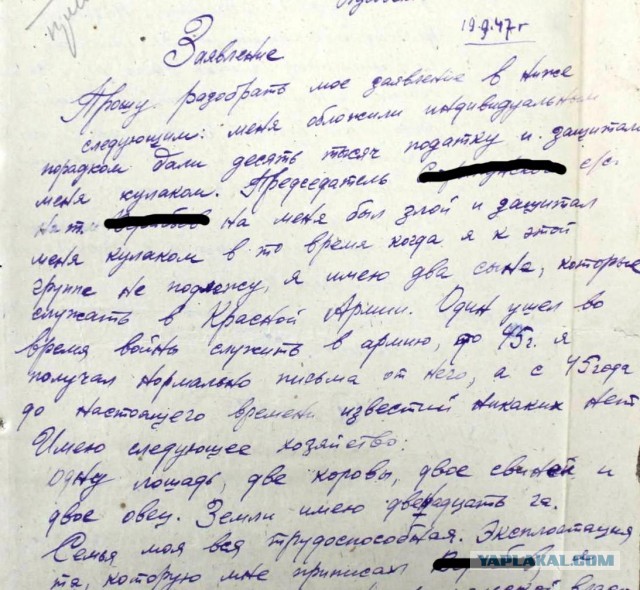 19.9.47 г
Заявление
Прошу разобрать мое заявление в ниже
следующим: меня обложили индивидуальным
порадком дали десять тысяч податку и защитали
меня кулаком. Председатель с/с.
на меня был злой и защитал
меня кулаком в то время когда я к этой
группе не подложу, я имею два сына, которые
служать в Красной Армии. Один ушел во
время войны служить в армию, до 45г. я
получал нормально письма от него, а с 45 года
до настоящего времени известий никаких нет
Имею следующее хозяйство:
одну лошадь, две коровы, двое свиней и
двое овец. Земли имею двенадцать га.
Семья моя вся трудоспособная. Эксплотация
та, которую мне приписал
YAPLAKAL.COM